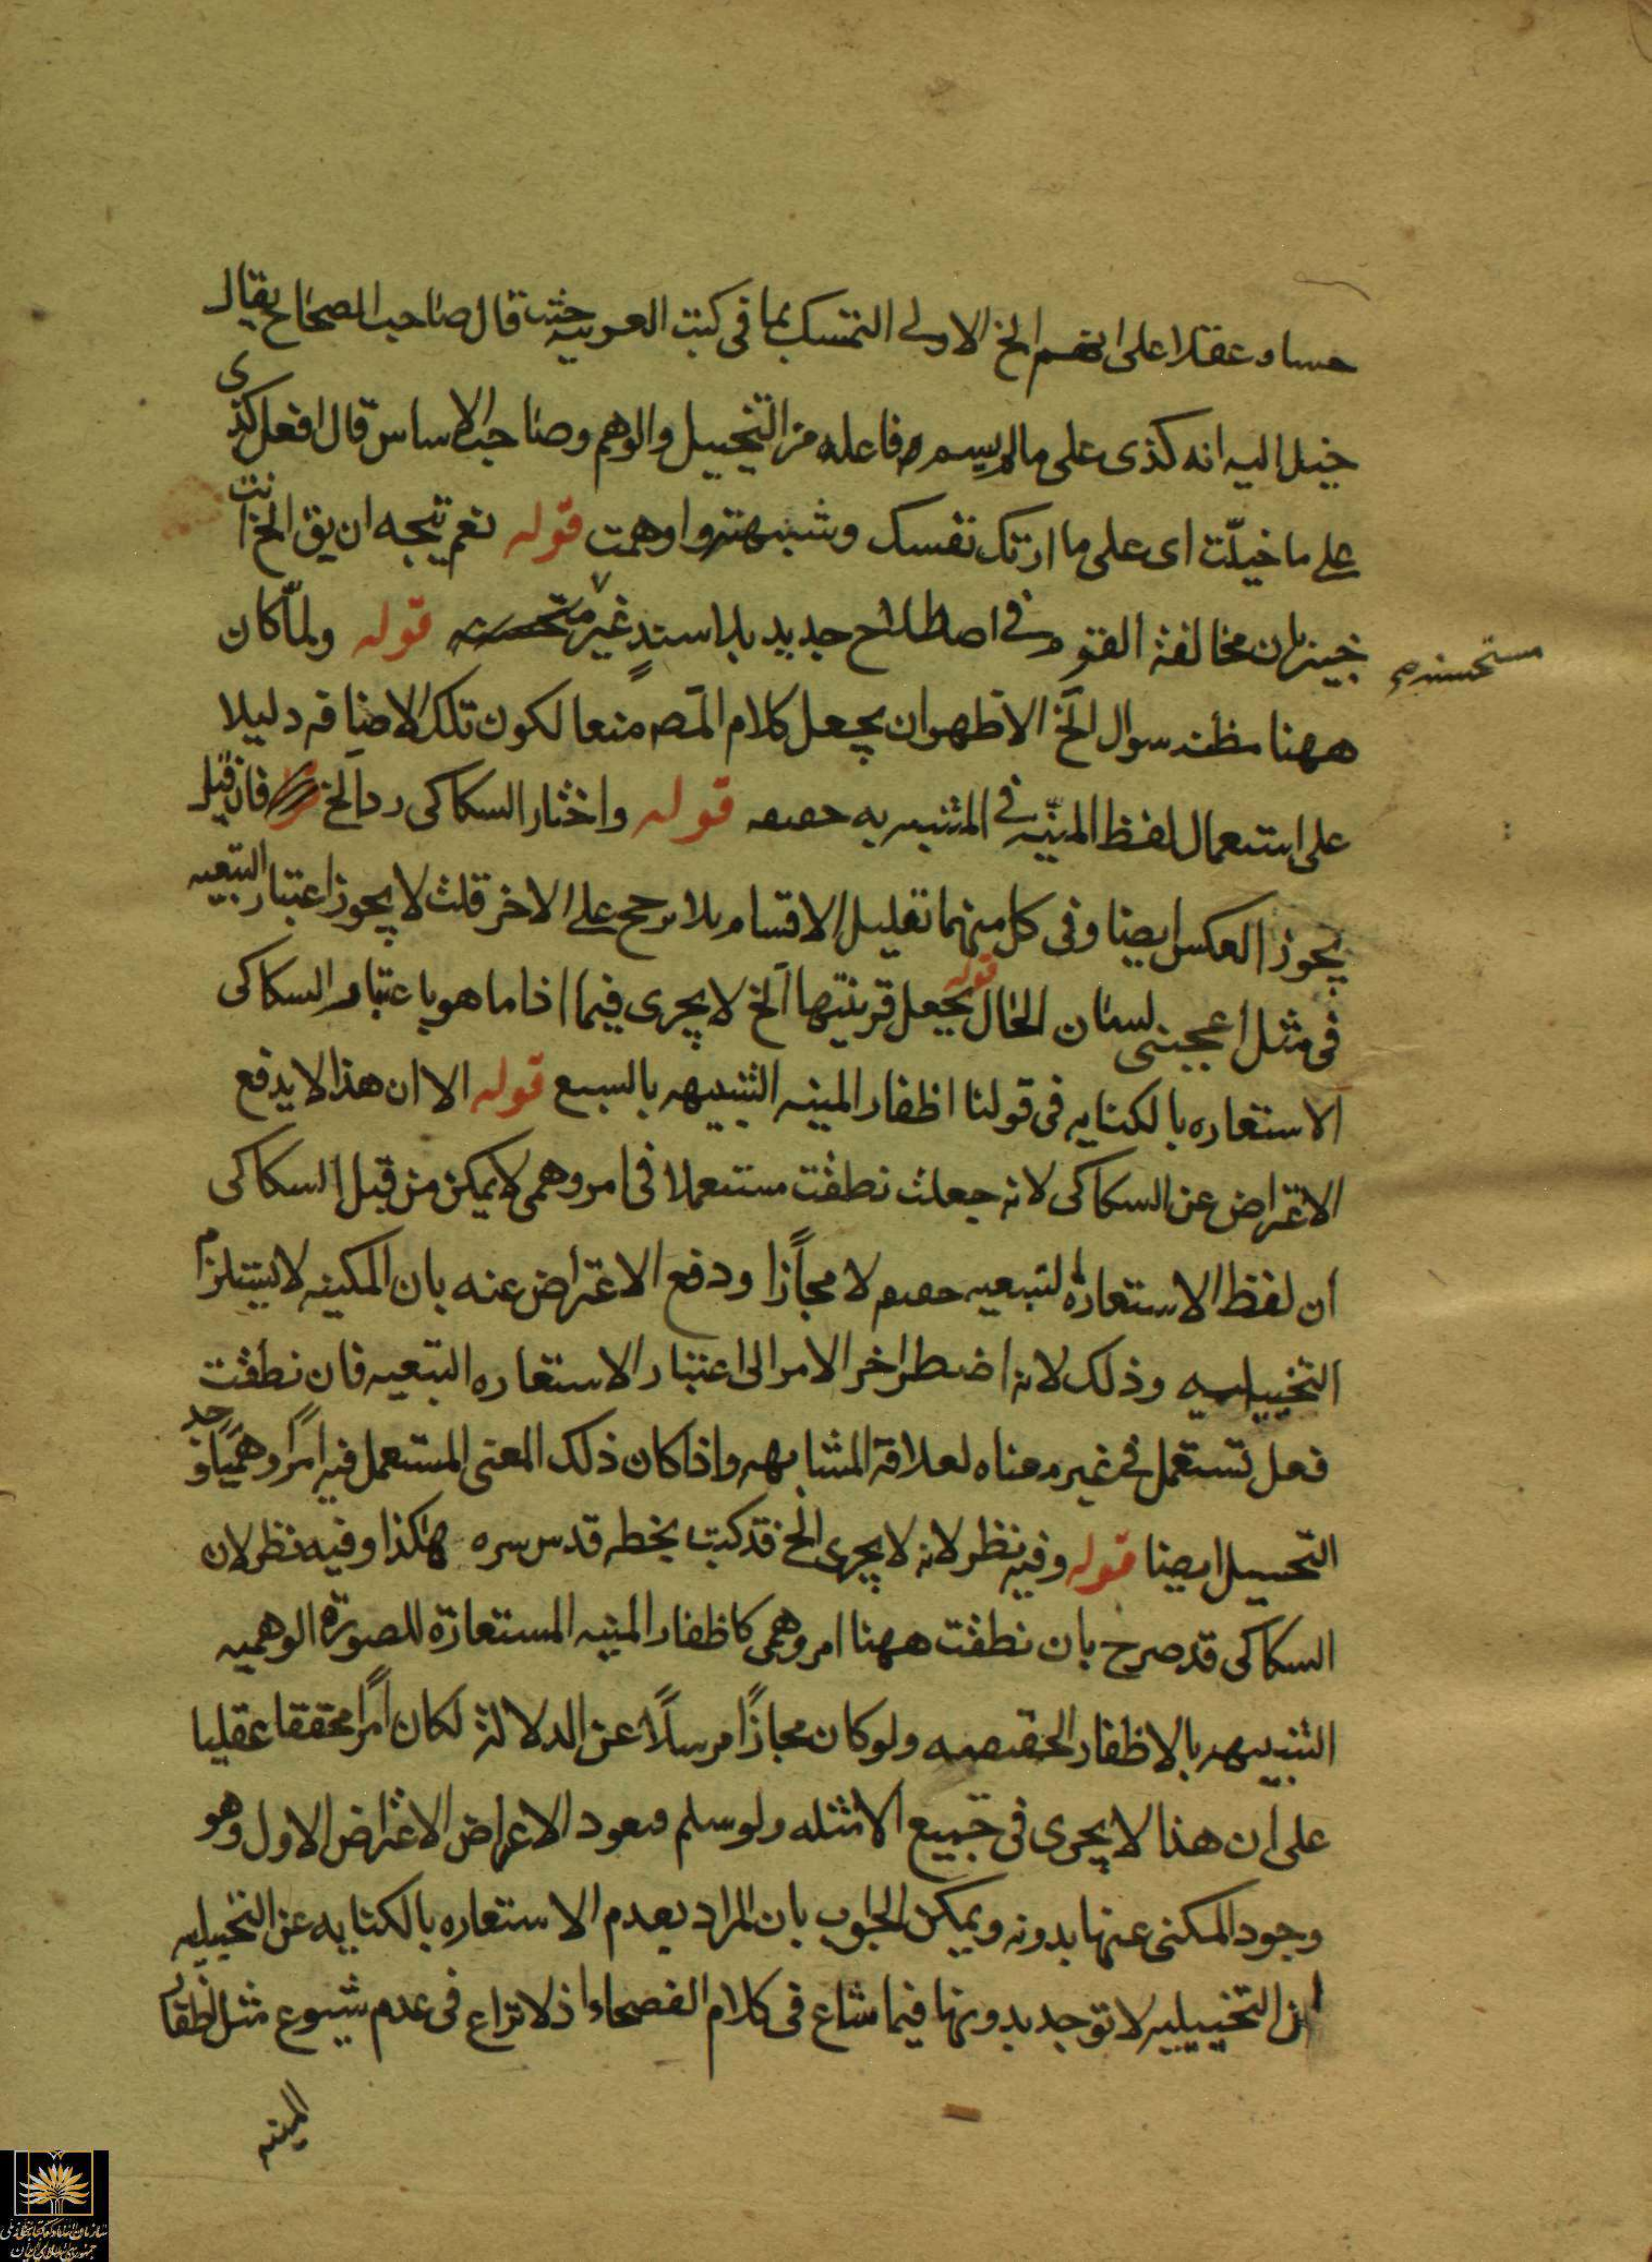 حسا و عقلا على القسم الخ الاولى التمسك بما فى كتب العربيه حيث قال صاحب الصحاح يقال
خيل اليه انه كذى على ما لم يسم فاعله من التخييل والوهم وصاحب الاساس قال افعل كذى
على ما خيلّت اى على ما ارتك نفسك وشبهته واوهمت قوله نعم يتجه ان يق الخ انت
خبير بان مخالفة القوم فى اصطلاح جديد بلا سندٍ غير قوله ولمّا كان
مستحسنه
ههنا مظنه سوال الخ الاظهر ان يجعل كلام المص منعا لكون تلك الاضافه دليلا
على استعمال لفظ المنيّه فى المشبه به حقيقه قوله واختار السكاكى رد الخ فان قيل
يجوز العكس ايضا وفى كل منهما تقليل الاقسام بلا مرجح على الاخر قلت لا يجوز اعتبار التبعيه
فى مثل اعجبنى لسان الحال قوله يجعل قرينتها الخ لا يجرى فيما اذا ما هو باعتبار السكاكى
الاستعاره بالكنايه فى قولنا اظفار المنيه الشبيهه بالسبع قوله الا ان هذا لا يدفع
الاعتراض عن السكاكى لانه جعلت نطقت مستعملا فى امر وهمى لا يمكن من قبل السكاكى
ان لفظ الاستعارة التبعيه حقيقه لا مجازًا ودفع الاعتراض عنه بان المكنيه لا يستلزم
التخييليه وذلك لانه اضطر اخر الامر الى اعتبار الاستعاره التبعيه فان نطقت
فعل تستعمل فى غير معناه لعلاقة المشابهه واذا كان ذلك المعنى المستعمل فيه امرًا وهميًا وجد
التخييل ايضا قوله وفيه نظر لانه لا يجرى الخ قد كتب بخطه قدس سره هكذا وفيه نظر لان
السكاكى قد صرح بان نطقت ههنا امر وهمى كاظفار المنيه المستعارة للصورة الوهميه
الشبيهه بالاظفار الحقيقيه ولو كان مجازًا مرسلًا عن الدلالة لكان امرًا محققا عقليا
على ان هذا لا يجرى فى جميع الامثله ولو سلم فيعود الاعراض الاعتراض الاول وهو
وجود المكنى عنها بدونه ويمكن الجواب بان المراد بعدم الاستعاره بالكنايه عن التخييليه
ان التخييليه لا توجد بدونها فيما شاع فى كلام الفصحاء اذ لا نزاع فى عدم شيوع مثل اظفار
المنيه